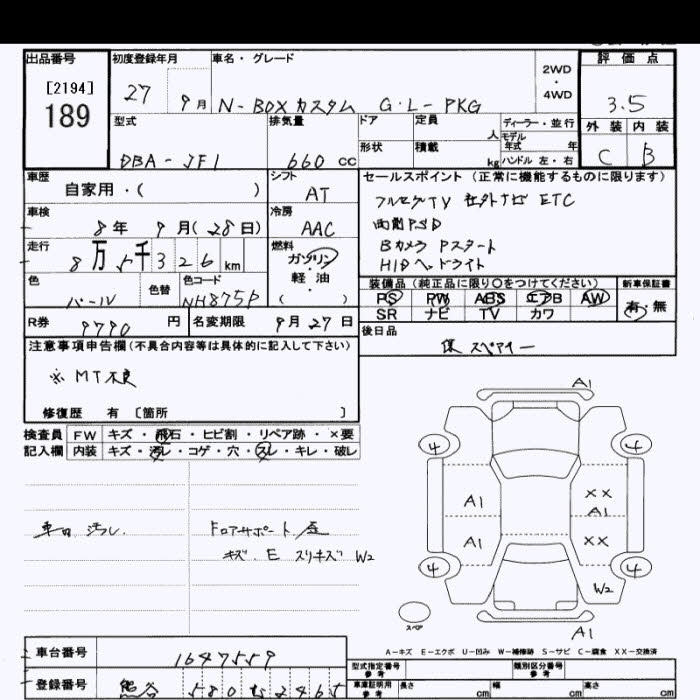 出品番号 初度登録年月 車名・グレード 評価点
[2194] 2WD ・ 4WD
189 27 9月 N-BOXカスタム G・L-PKG 3.5
型式 排気量 ドア 定員 人 ディーラー・並行 外装 内装
形状 積載 kg モデル年式 年
DBA-JF1 660cc ハンドル 左・右 C B
車歴 自家用・( ) シフト AT セールスポイント(正常に機能するものに限ります)
車検 8年 9月(28日) 冷房 AAC フルセグTV 社外ナビ ETC
両側PSD
走行 8万5千326km 燃料 ガソリン・軽油 ( ) Bカメラ Pスタート
HIDヘッドライト
色 パール 色替 色コード NH875P 装備品(純正品に限り○をつけてください) 新車保証書
PS PW ABS エアB AW 有・無
R券 9770円 名変期限 9月27日 SR ナビ TV カワ
注意事項申告欄(不具合内容等は具体的に記入して下さい) 後日品
保 スペアキー
※MT不良
修復歴 有 〔箇所 〕
検査員 FW キズ・飛石・ヒビ割・リペア跡・×要
記入欄 内装 キズ・汚レ・コゲ・穴・スレ・キレ・破レ
A1
4 4
A1 XX
A1
A1 XX
4 4
W2
スペア A1
車内 汚レ. ドロアサポート
キズ. E スリキズ W2
A-キズ E-エクボ U-凹み W-補修跡 S-サビ C-腐食 XX-交換済
車台番号 1647559 型式指定番号 参考 類別区分番号 参考
登録番号 熊谷 580 2465 車庫証明用 参考 長さ cm 幅 cm 高さ cm